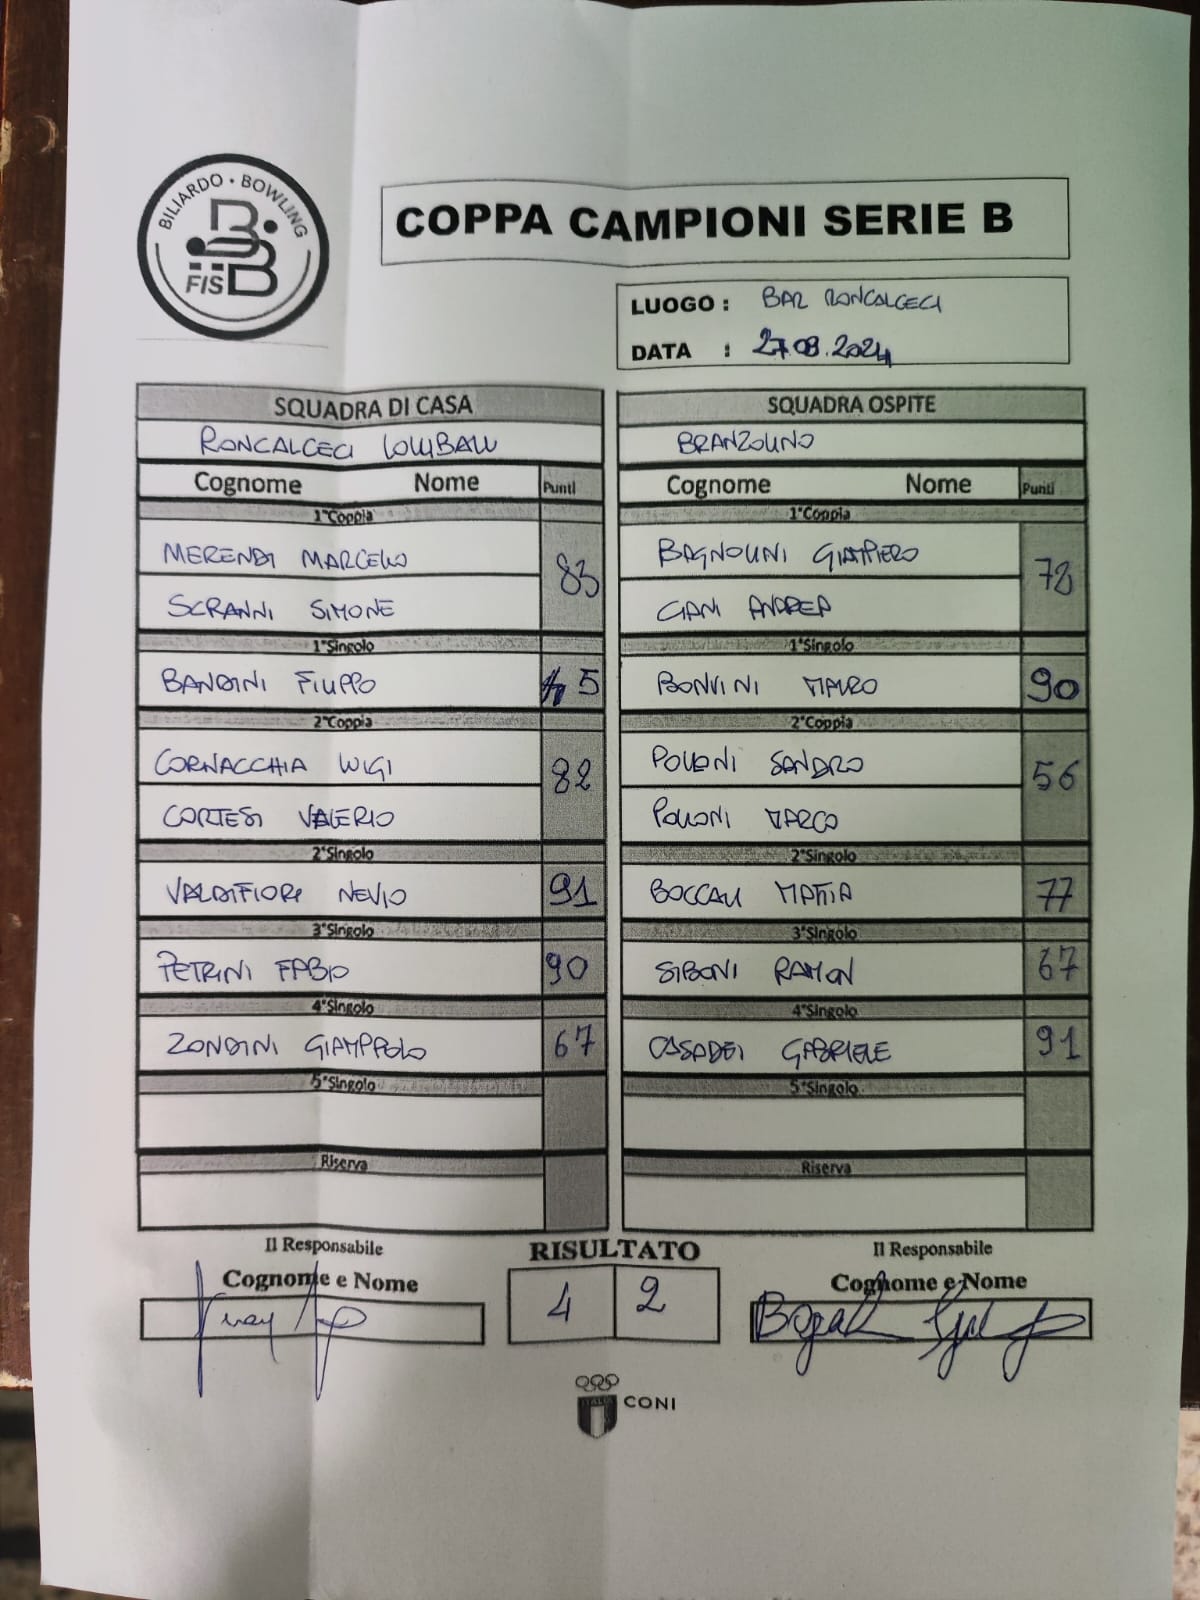 BILIARDO • BOWLING
FISBB
COPPA CAMPIONI SERIE B
LUOGO : BAR RONCALCECI
DATA : 27.09.2024
SQUADRA DI CASA
RONCALCECI LOMBALLI
Cognome Nome Punti
1°Coppia
MERENDI MARCELLO
83
SCRANNI SIMONE
1°Singolo
BANDINI FILIPPO 5
2°Coppia
CORNACCHIA LUIGI
82
CORTESI VALERIO
2°Singolo
VALDIFIORI NEVIO 91
3°Singolo
PETRINI FABIO 90
4°Singolo
ZONDINI GIAMPAOLO 67
5°Singolo
Riserva
SQUADRA OSPITE
BRANZOLINO
Cognome Nome Punti
1°Coppia
BAGNOLINI GIAMPIERO
78
CIANI ANDREA
1°Singolo
BONVINI MAURO 90
2°Coppia
POLLONI SANDRO
56
POLLONI MARCO
2°Singolo
BOCCALI MATTIA 77
3°Singolo
SIBONI RAMON 67
4°Singolo
CASADEI GABRIELE 91
5°Singolo
Riserva
Il Responsabile
Cognome e Nome
RISULTATO
4 2
Il Responsabile
Cognome e Nome
ITALIA
CONI